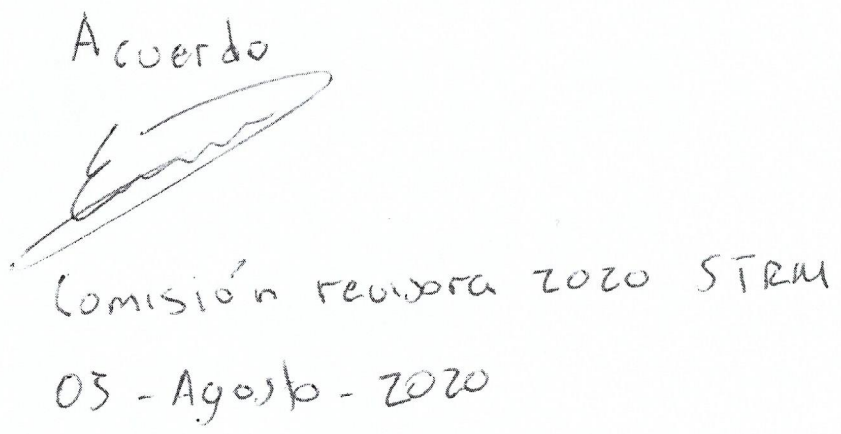 Acuerdo
Comisión revisora 2020 STRM
05 - Agosto - 2020